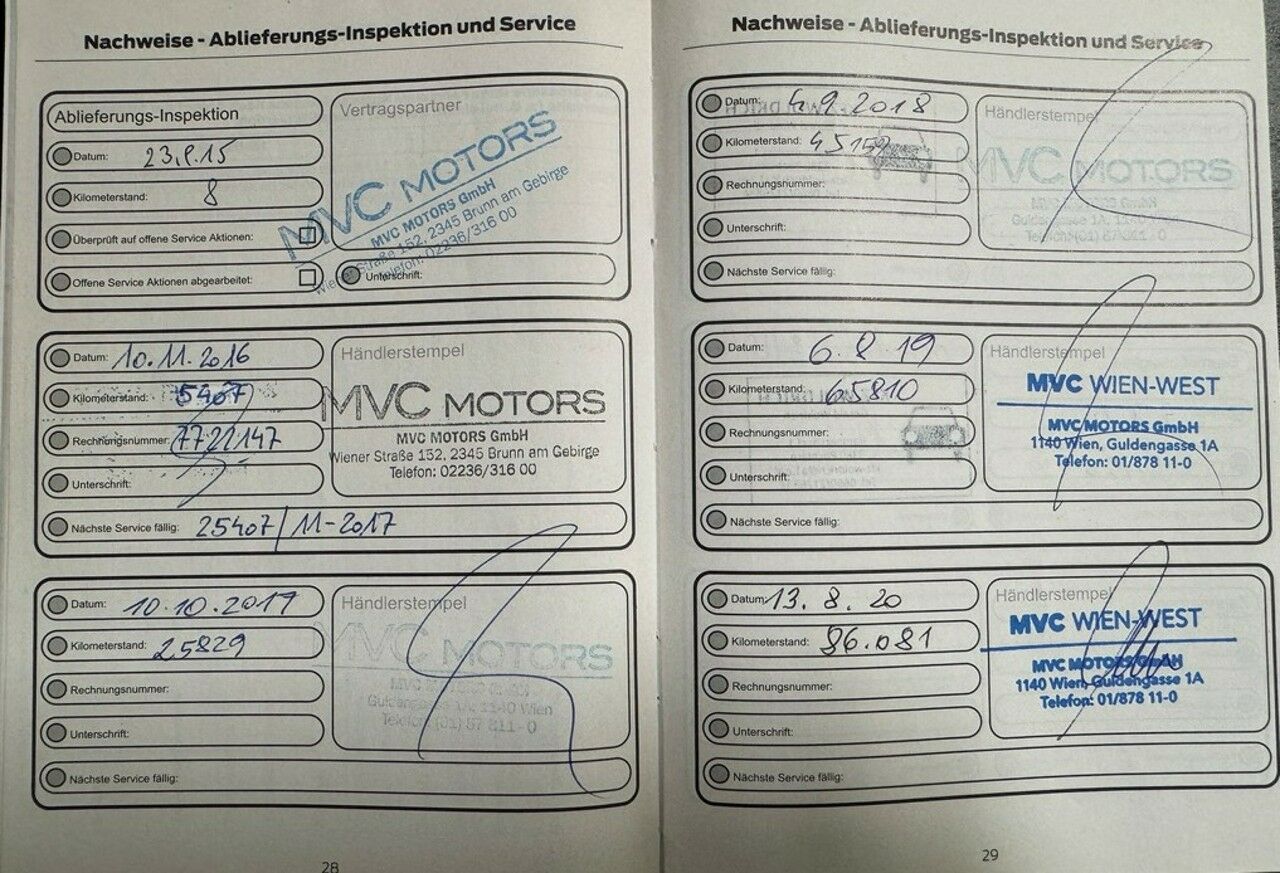 Nachweise - Ablieferungs-Inspektion und Service
Ablieferungs-Inspektion
Datum: 23.8.15
Kilometerstand: 8
Überprüft auf offene Service Aktionen:
Offene Service Aktionen abgearbeitet:
Vertragspartner
MVC MOTORS
MVC MOTORS GmbH
Wiener Straße 152, 2345 Brunn am Gebirge
Telefon: 02236/316 00
Unterschrift:
Datum: 10.11.2016
Kilometerstand: 5407
Rechnungsnummer: 7722147
Unterschrift:
Nächste Service fällig: 25407/11-2017
Händlerstempel
MVC MOTORS
MVC MOTORS GmbH
Wiener Straße 152, 2345 Brunn am Gebirge
Telefon: 02236/316 00
Datum: 10.10.2017
Kilometerstand: 25829
Rechnungsnummer:
Unterschrift:
Nächste Service fällig:
Händlerstempel
MVC MOTORS
Guldengasse 1A, 1140 Wien
Telefon: (01) 87 811-0
28
Nachweise - Ablieferungs-Inspektion und Service
Datum: 4.9.2018
Kilometerstand:
Rechnungsnummer:
Unterschrift:
Nächste Service fällig:
Händlerstempel
MVC MOTORS
Guldengasse 1A,
Telefon: (01) 87 811-0
Datum: 6.8.19
Kilometerstand: 65810
Rechnungsnummer:
Unterschrift:
Nächste Service fällig:
Händlerstempel
MVC WIEN-WEST
MVC MOTORS GmbH
1140 Wien, Guldengasse 1A
Telefon: 01/878 11-0
Datum: 13.8.20
Kilometerstand: 86.081
Rechnungsnummer:
Unterschrift:
Nächste Service fällig:
Händlerstempel
MVC WIEN-WEST
MVC MOTORS GmbH
1140 Wien, Guldengasse 1A
Telefon: 01/878 11-0
29